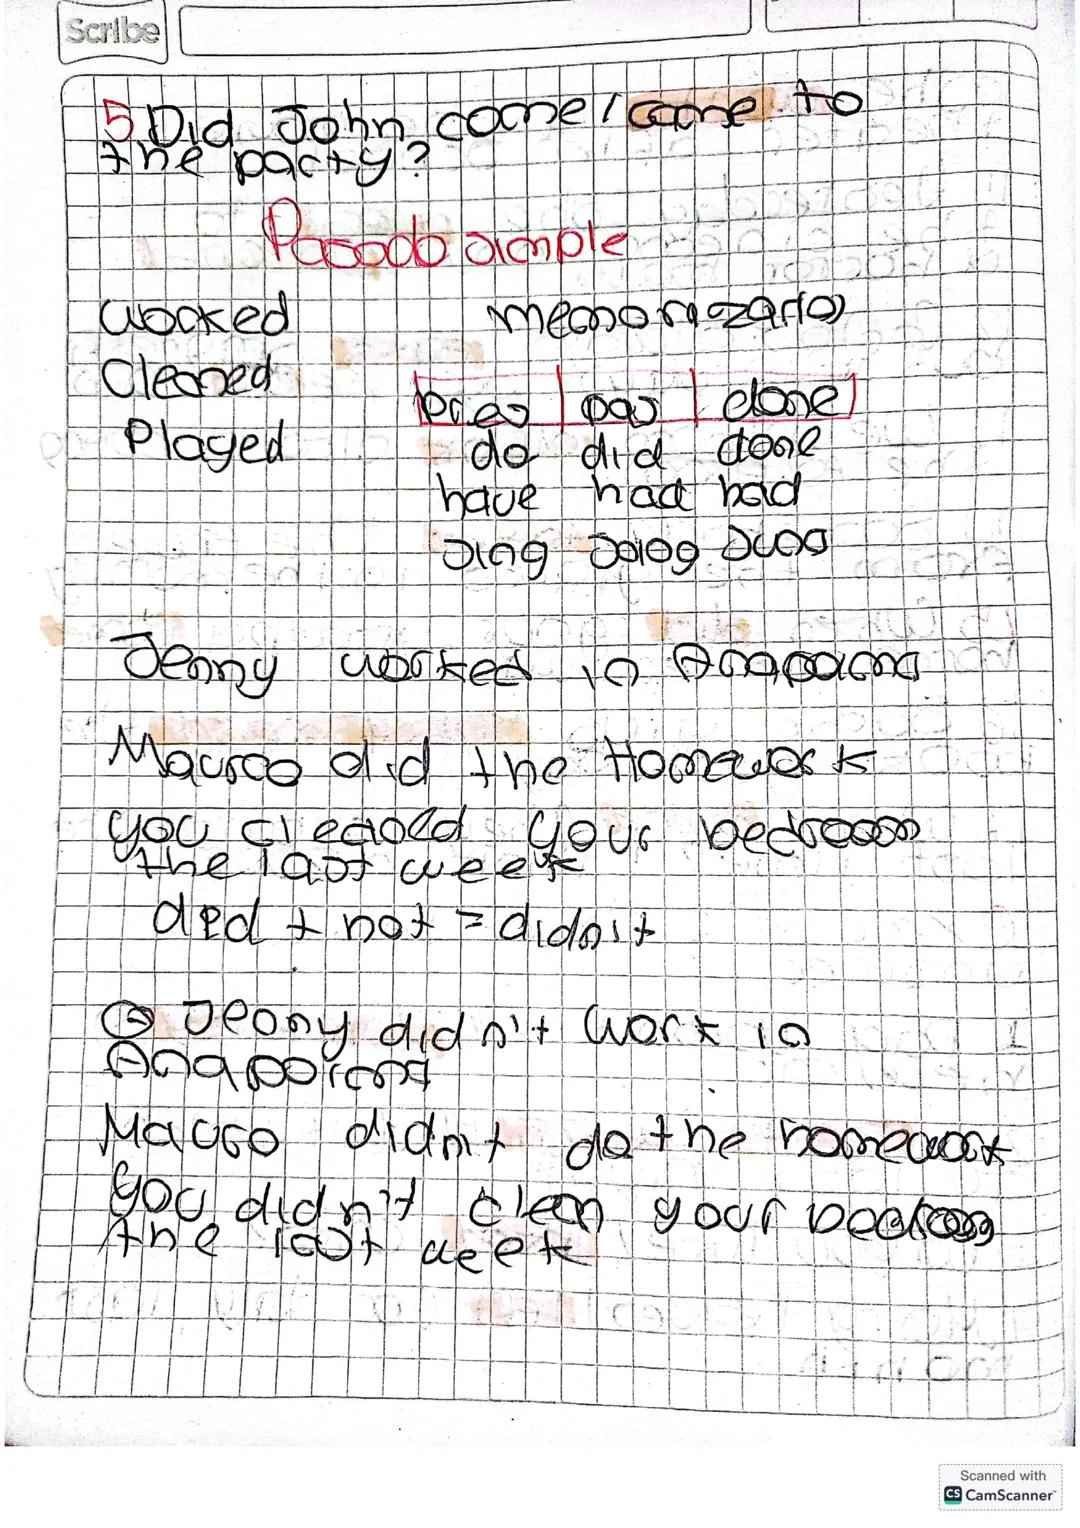 Scribe
5 Did John come / came to
the party?
Pasado simple
worked memorizarlos
Cleaned
pres pas done
Played
do did done
have had had
sing sang sung
Jenny worked in
Marco did the Homework
you cleaned your bedroom
the last week
did + not = didn't
Jenny didn't work in
Marco didn't do the homework
you didn't clean your bedroom
the last week
Scanned with
CS CamScanner